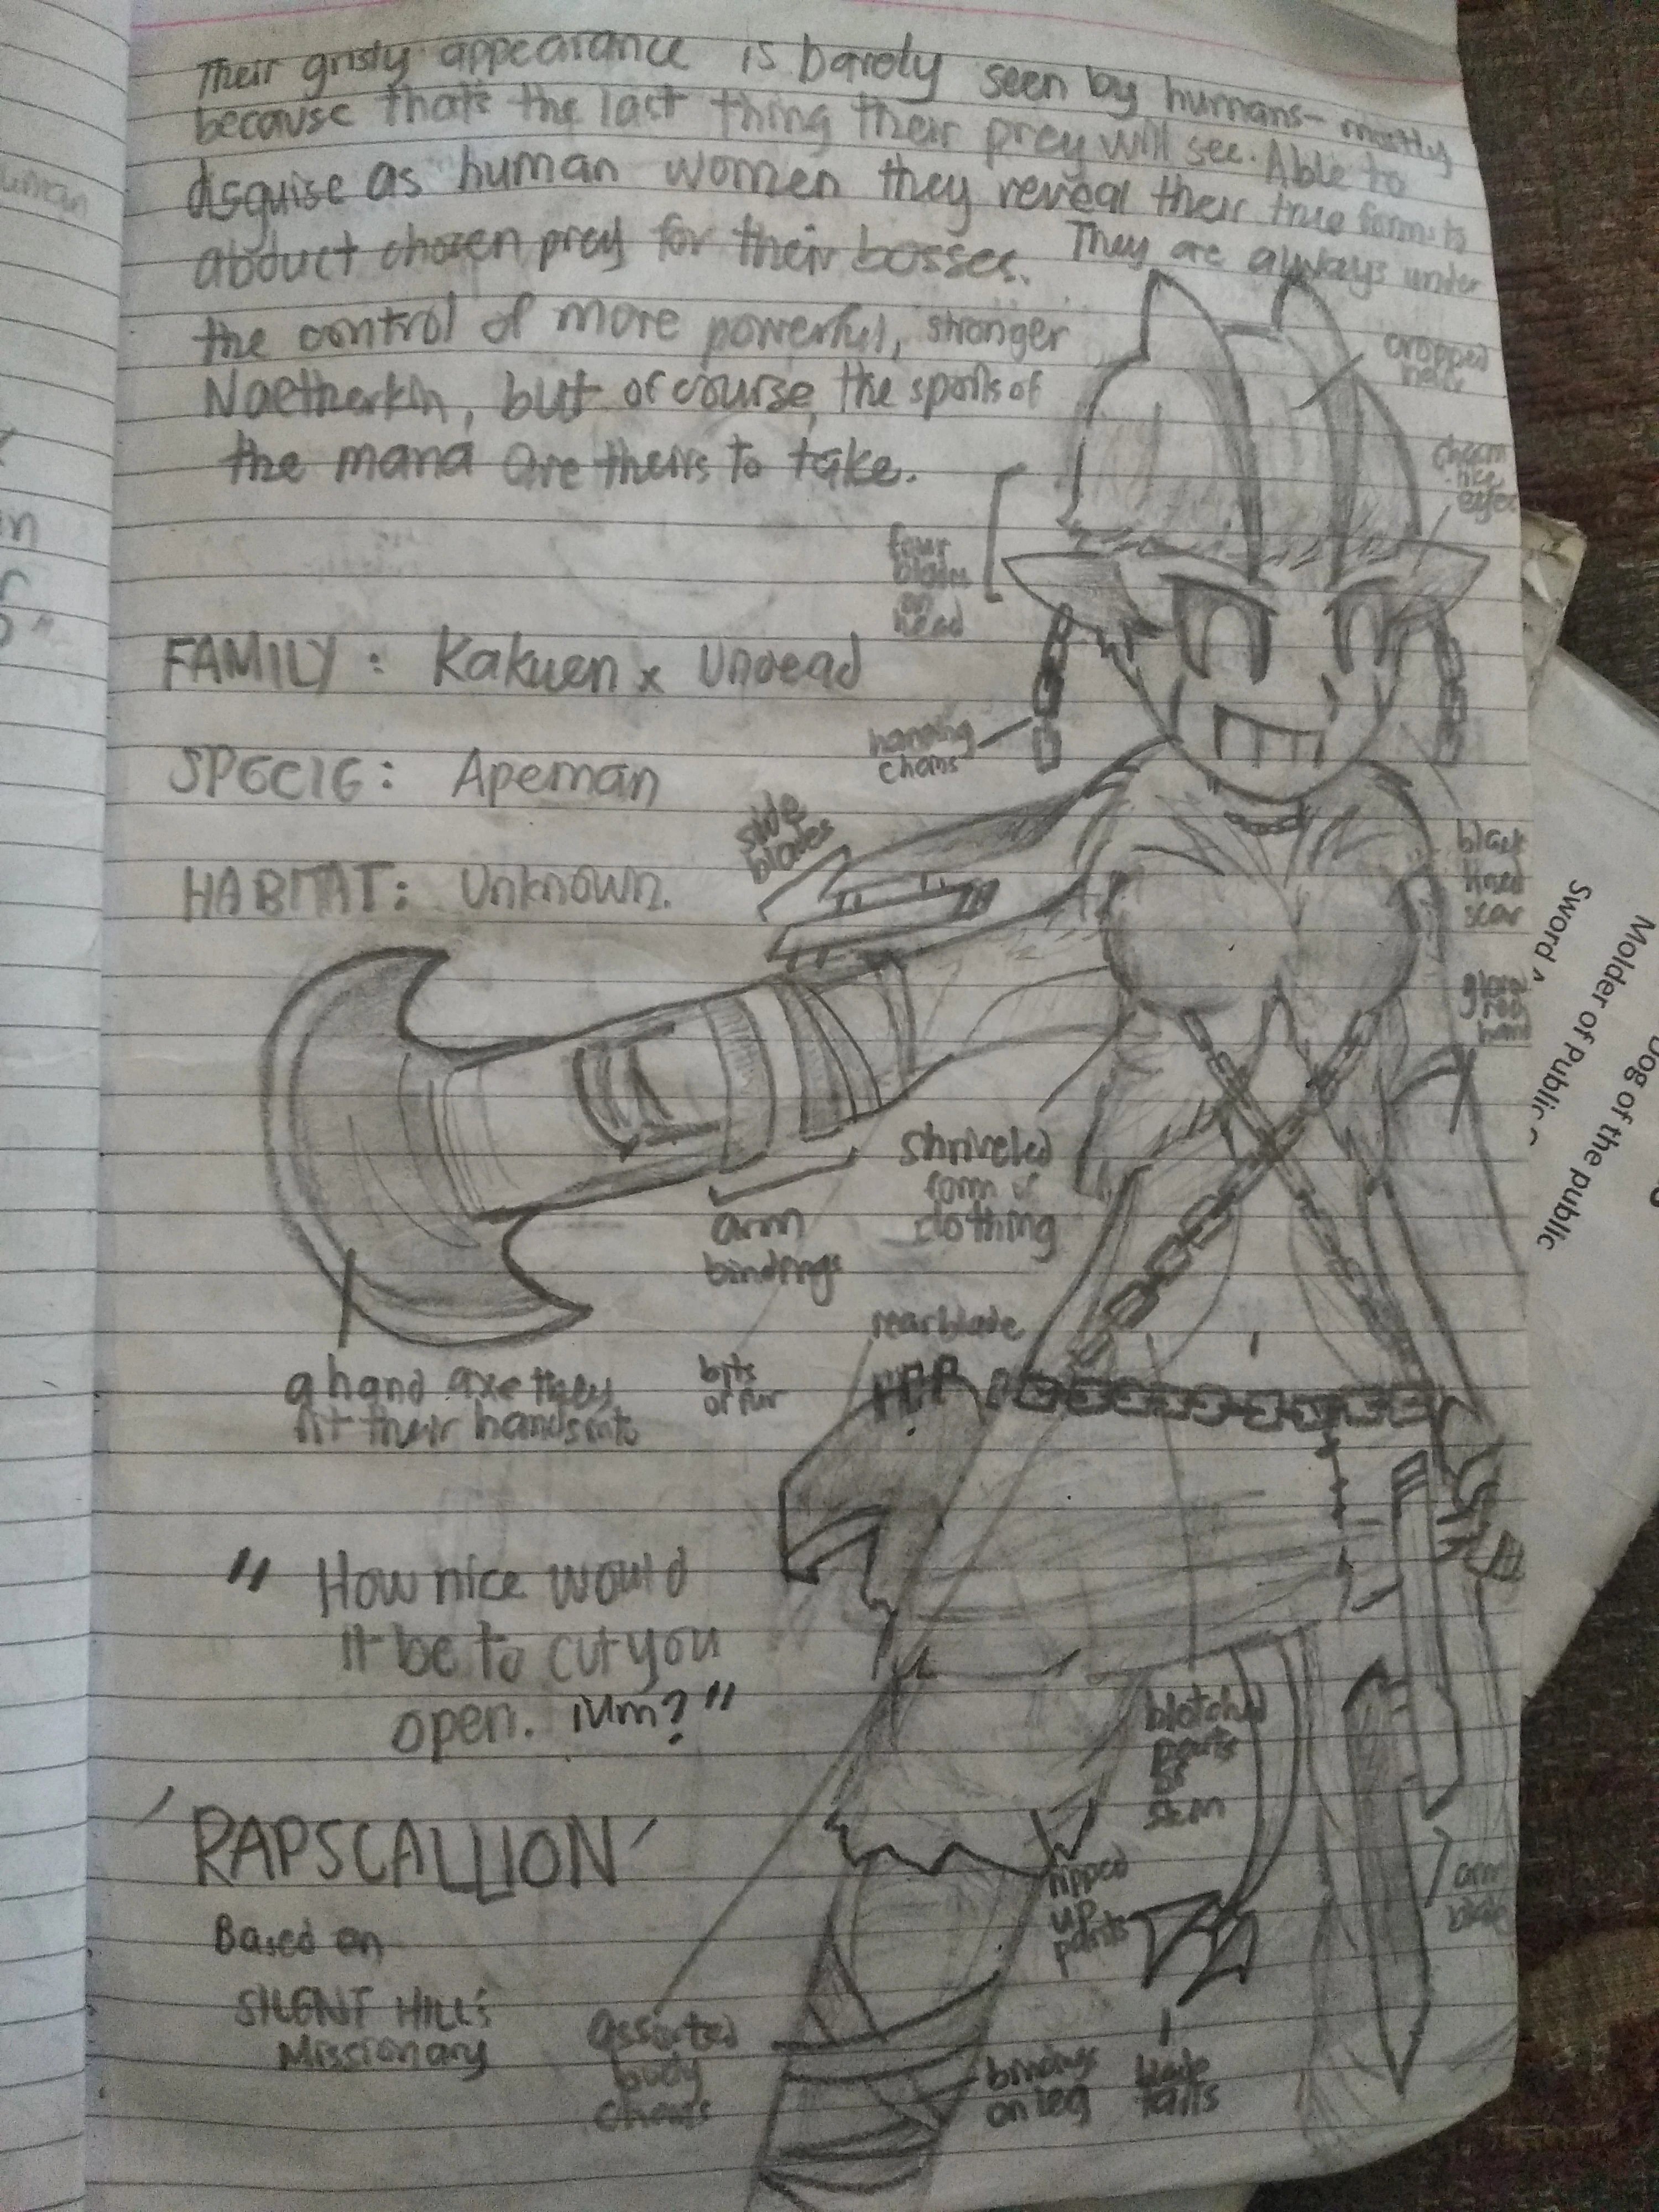 Their grisly appearance is barely seen by humans- mostly
because that's the last thing their prey will see. Able to
disguise as human women they reveal their true forms to
abduct chosen prey for their bosses. They are always under
the control of more powerful, stronger
Naetherkin, but of course, the spoils of
the mana are theirs to take.
cropped
four
blades
on
head
eyes
FAMILY: Kakuen x Undead
hanging
chains
SPECIE: Apeman
side
blades
HABITAT: Unknown.
black
lined
scar
hand
shriveled
form of
clothing
arm
bindings
rear blade
a hand axe they
fit their hands into
bits
of fur
"How nice would
it be to cut you
open. Mm?"
blotched
parts
of
skin
'RAPSCALLION'
ripped
up
pants
arm
blade
Based on
SILENT HILL's
Missionary
assorted
body
chains
bindings
on leg
blade
tails
Sword ^
Molder of Public
Dog of the public
uman
in